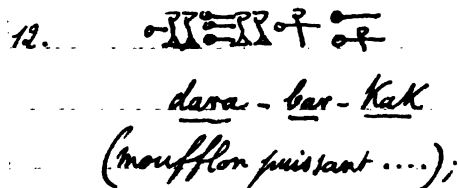 12.
dara - bar - KaK
(moufflon puissant ....);